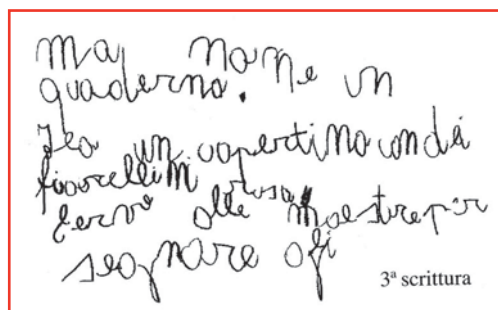 ma non e un
quaderno.
Ha un copertina con dei
fiorellini rosa
serve alle maestre per
segnare gli
3ª scrittura